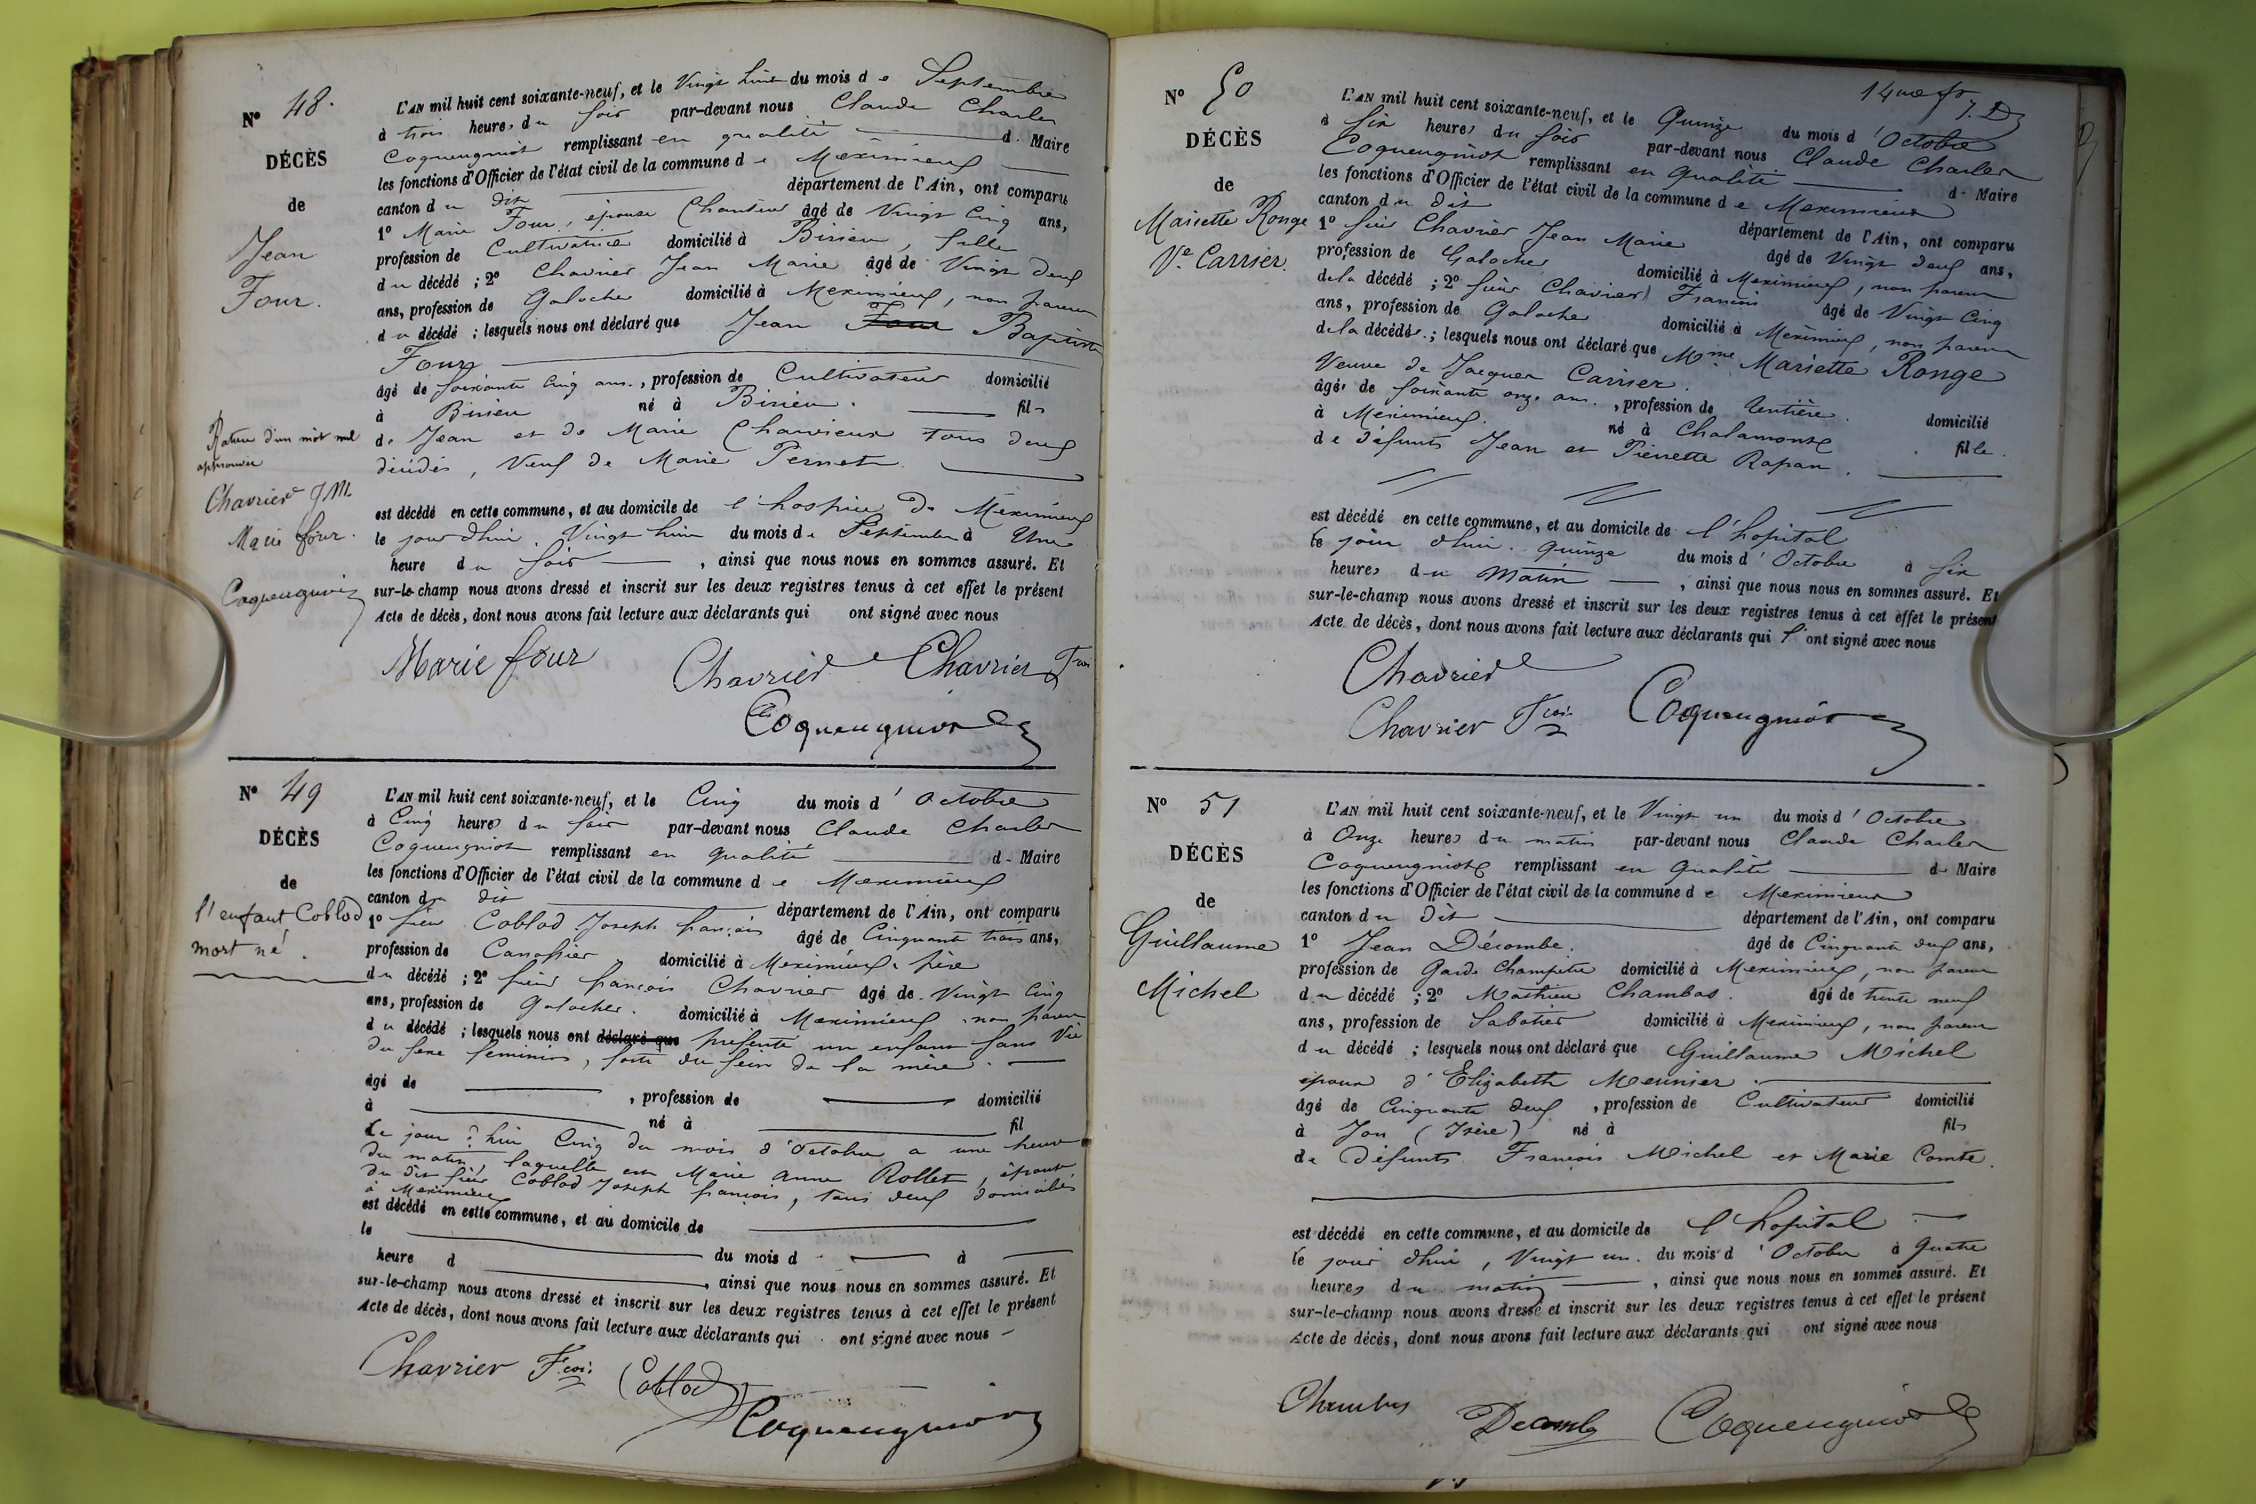 N° 48.
DÉCÈS
de
Jean
Four.
Rature d'un mot nul
approuvée
Chavrier J M
Marie four.
Coqueugniot
L'AN mil huit cent soixante-neuf, et le Vingt huit du mois de Septembre
à trois heures du soir par-devant nous Claude Charles
Coqueugniot remplissant en qualité de Maire
les fonctions d'Officier de l'état civil de la commune de Meximieux
canton du dit département de l'Ain, ont comparu
1° Marie Four, épouse Chanteur âgé de Vingt Cinq ans,
profession de Cultivatrice domicilié à Birieu, fille
du décédé ; 2° Chavrier Jean Marie âgé de Vingt deux
ans, profession de Galocher domicilié à Meximieux, non parent
du décédé ; lesquels nous ont déclaré que Jean Four Baptiste
Four
âgé de soixante cinq ans, profession de Cultivateur domicilié
à Birieu né à Birieu. fils
de Jean et de Marie Charvieux tous deux
décédés, Veuf de Marie Pernet.
est décédé en cette commune, et au domicile de l'hospice de Meximieux
le jour d'hui Vingt huit du mois de Septembre à Une
heure du soir, ainsi que nous nous en sommes assuré. Et
sur-le-champ nous avons dressé et inscrit sur les deux registres tenus à cet effet le présent
Acte de décès, dont nous avons fait lecture aux déclarants qui ont signé avec nous
Marie four Chavrier Chavrier Fcois
Coqueugniot
N° 49
DÉCÈS
de
l'enfant Coblod
mort né.
L'AN mil huit cent soixante-neuf, et le Cinq du mois d'Octobre
à Cinq heures du soir par-devant nous Claude Charles
Coqueugniot remplissant en qualité de Maire
les fonctions d'Officier de l'état civil de la commune de Meximieux
canton du dit département de l'Ain, ont comparu
1° sieur Coblod Joseph françois âgé de Cinquante trois ans,
profession de domicilié à Meximieux père
du décédé ; 2° sieur françois Chavrier âgé de Vingt Cinq
ans, profession de Galocher. domicilié à Meximieux non parent
du décédé ; lesquels nous ont déclaré que présenté un enfant sans Vie
du sexe féminin, sorti du sein de la mère.
âgé de , profession de domicilié
à né à fil
Le jour d'hui Cinq du mois d'Octobre a une heure
du matin, laquelle est Marie Anne Rollet, épouse
du dit sieur Coblod Joseph françois, tous deux domiciliés
à Meximieux
est décédé en cette commune, et au domicile de
le
heure d du mois d à
, ainsi que nous nous en sommes assuré. Et
sur-le-champ nous avons dressé et inscrit sur les deux registres tenus à cet effet le présent
Acte de décès, dont nous avons fait lecture aux déclarants qui ont signé avec nous
Chavrier Fcois Coblod
Coqueugniot
N° 50
DÉCÈS
de
Mariette Ronge
Ve Carrier.
L'AN mil huit cent soixante-neuf, et le Quinze du mois d'Octobre
à six heures du soir par-devant nous Claude Charles
Coqueugniot remplissant en qualité de Maire
les fonctions d'Officier de l'état civil de la commune de Meximieux
canton du dit département de l'Ain, ont comparu
1° sieur Chavrier Jean Marie âgé de Vingt deux ans,
profession de Galocher domicilié à Meximieux, non parent
de la décédé ; 2° sieur Chavrier François âgé de Vingt Cinq
ans, profession de Galocher domicilié à Meximieux, non parent
de la décédée ; lesquels nous ont déclaré que Mme Mariette Ronge
Veuve de Jacques Carrier.
âgée de soixante onze ans, profession de Rentière. domicilié
à Meximieux. né à Chalamont fille.
de défunts Jean et Pierrette Rapan.
est décédé en cette commune, et au domicile de l'hôpital
le jour d'hui quinze du mois d'Octobre à six
heures du Matin, ainsi que nous nous en sommes assuré. Et
sur-le-champ nous avons dressé et inscrit sur les deux registres tenus à cet effet le présent
Acte de décès, dont nous avons fait lecture aux déclarants qui ont signé avec nous
Chavrier
Chavrier Fcois Coqueugniot
N° 51
DÉCÈS
de
Guillaume
Michel
L'AN mil huit cent soixante-neuf, et le Vingt un du mois d'Octobre
à Onze heures du matin par-devant nous Claude Charles
Coqueugniot remplissant en qualité de Maire
les fonctions d'Officier de l'état civil de la commune de Meximieux
canton du dit département de l'Ain, ont comparu
1° Jean Décombe. âgé de Cinquante deux ans,
profession de Garde Champêtre domicilié à Meximieux, non parent
du décédé ; 2° Mathieu Chambas. âgé de trente neuf
ans, profession de Sabotier domicilié à Meximieux, non parent
du décédé ; lesquels nous ont déclaré que Guillaume Michel
époux d'Elizabeth Meunier.
âgé de Cinquante deux, profession de Cultivateur domicilié
à Jon (Isère) né à fils
de Défunts François Michel et Marie Comte.
est décédé en cette commune, et au domicile de l'hôpital
le jour d'hui, Vingt un du mois d'Octobre à Quatre
heures du matin, ainsi que nous nous en sommes assuré. Et
sur-le-champ nous avons dressé et inscrit sur les deux registres tenus à cet effet le présent
Acte de décès, dont nous avons fait lecture aux déclarants qui ont signé avec nous
Chambas Decombe Coqueugniot